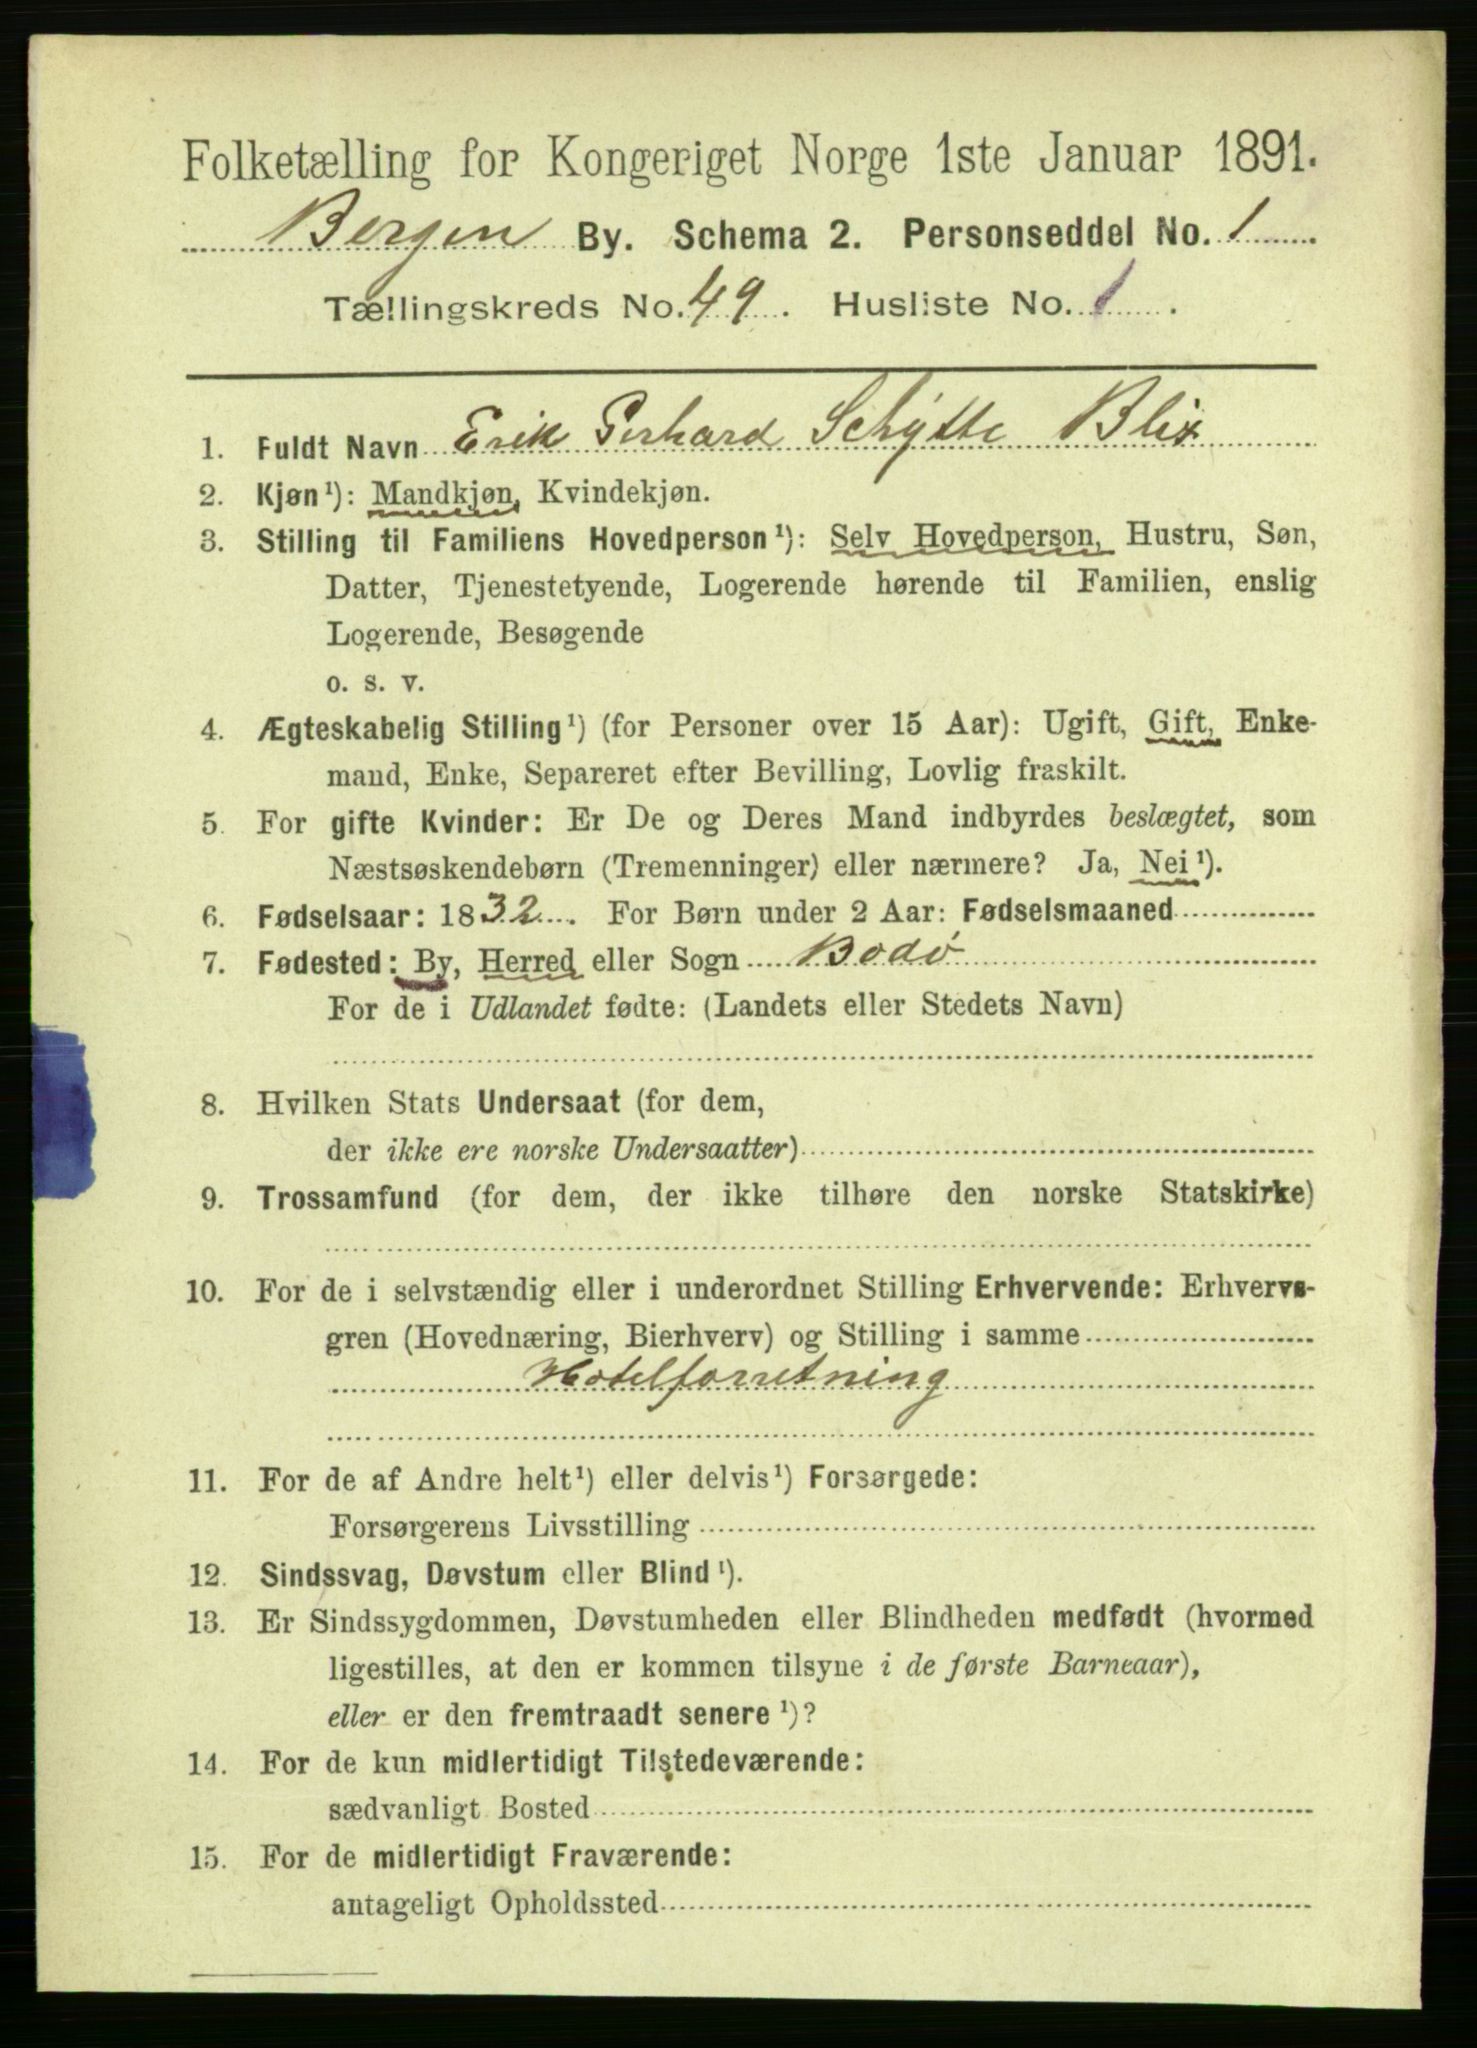 Folketælling for Kongeriget Norge 1ste Januar 1891.
Bergen By. Schema 2. Personseddel No. 1
Tællingskreds No. 49. Husliste No. 1.
1. Fuldt Navn Erik Gerhard Schytte Blix
2. Kjøn¹): Mandkjøn, Kvindekjøn.
3. Stilling til Familiens Hovedperson¹): Selv Hovedperson, Hustru, Søn,
Datter, Tjenestetyende, Logerende hørende til Familien, enslig
Logerende, Besøgende
o. s. v.
4. Ægteskabelig Stilling¹) (for Personer over 15 Aar): Ugift, Gift, Enke-
mand, Enke, Separeret efter Bevilling, Lovlig fraskilt.
5. For gifte Kvinder: Er De og Deres Mand indbyrdes beslægtet, som
Næstsøskendebørn (Tremenninger) eller nærmere? Ja, Nei¹).
6. Fødselsaar: 1832. For Børn under 2 Aar: Fødselsmaaned
7. Fødested: By, Herred eller Sogn Bodø
For de i Udlandet fødte: (Landets eller Stedets Navn)
8. Hvilken Stats Undersaat (for dem,
der ikke ere norske Undersaatter)
9. Trossamfund (for dem, der ikke tilhøre den norske Statskirke)
10. For de i selvstændig eller i underordnet Stilling Erhvervende: Erhvervs-
gren (Hovednæring, Bierhverv) og Stilling i samme
Hotelforretning
11. For de af Andre helt¹) eller delvis¹) Forsørgede:
Forsørgerens Livsstilling
12. Sindssvag, Døvstum eller Blind¹).
13. Er Sindssygdommen, Døvstumheden eller Blindheden medfødt (hvormed
ligestilles, at den er kommen tilsyne i de første Barneaar),
eller er den fremtraadt senere¹)?
14. For de kun midlertidigt Tilstedeværende:
sædvanligt Bosted
15. For de midlertidigt Fraværende:
antageligt Opholdssted